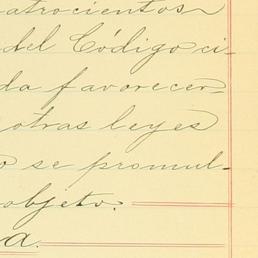 atrocientos
del Código ci-
da favorecer-
otras leyes
o se promul-
objeto.
a.